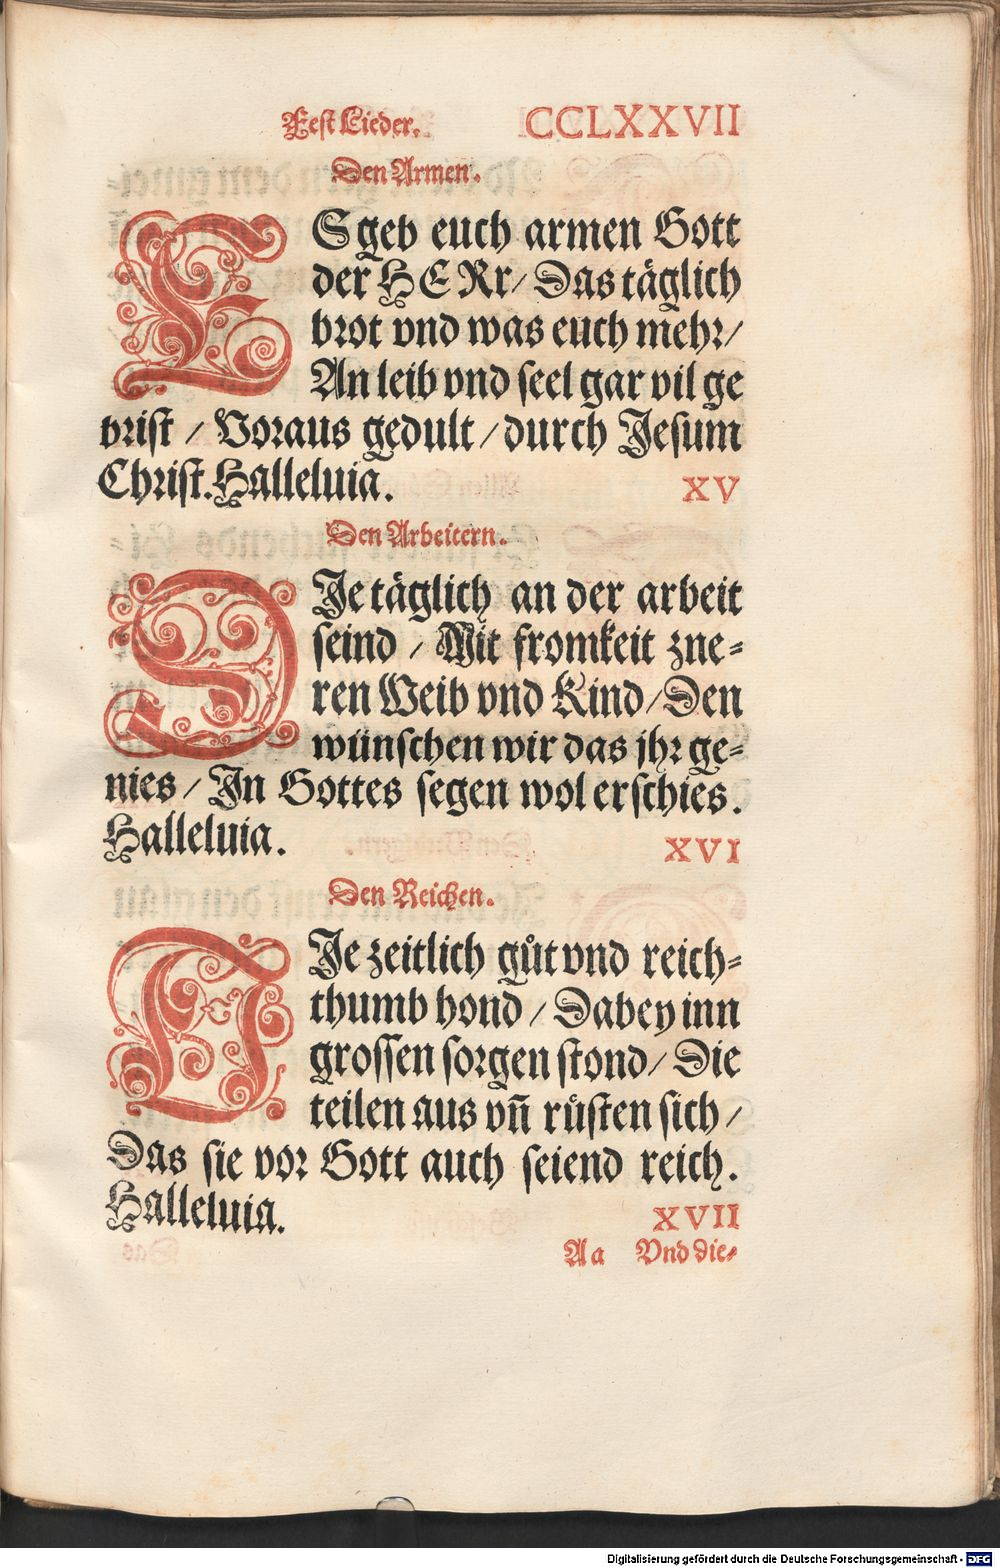 Fest Lieder. CCLXXVII
Den Armen.
ES geb euch armen Gott
der HERr/ Das täglich
brot vnd was euch mehr/
An leib vnd seel gar vil ge
brist / Voraus gedult / durch Jesum
Christ. Halleluia. XV
Den Arbeitern.
DJe täglich an der arbeit
seind / Mit fromkeit zne-
ren Weib vnd Kind/ Den
wünschen wir das jhr ge-
nies / Jn Gottes segen wol erschies.
Halleluia. XVI
Den Reichen.
DJe zeitlich gůt vnd reich-
thumb hond / Dabey inn
grossen sorgen stond/ Die
teilen aus vñ rüsten sich /
Das sie vor Gott auch seiend reich.
Halleluia. XVII
Aa Vnd die-
Digitalisierung gefördert durch die Deutsche Forschungsgemeinschaft - DFG